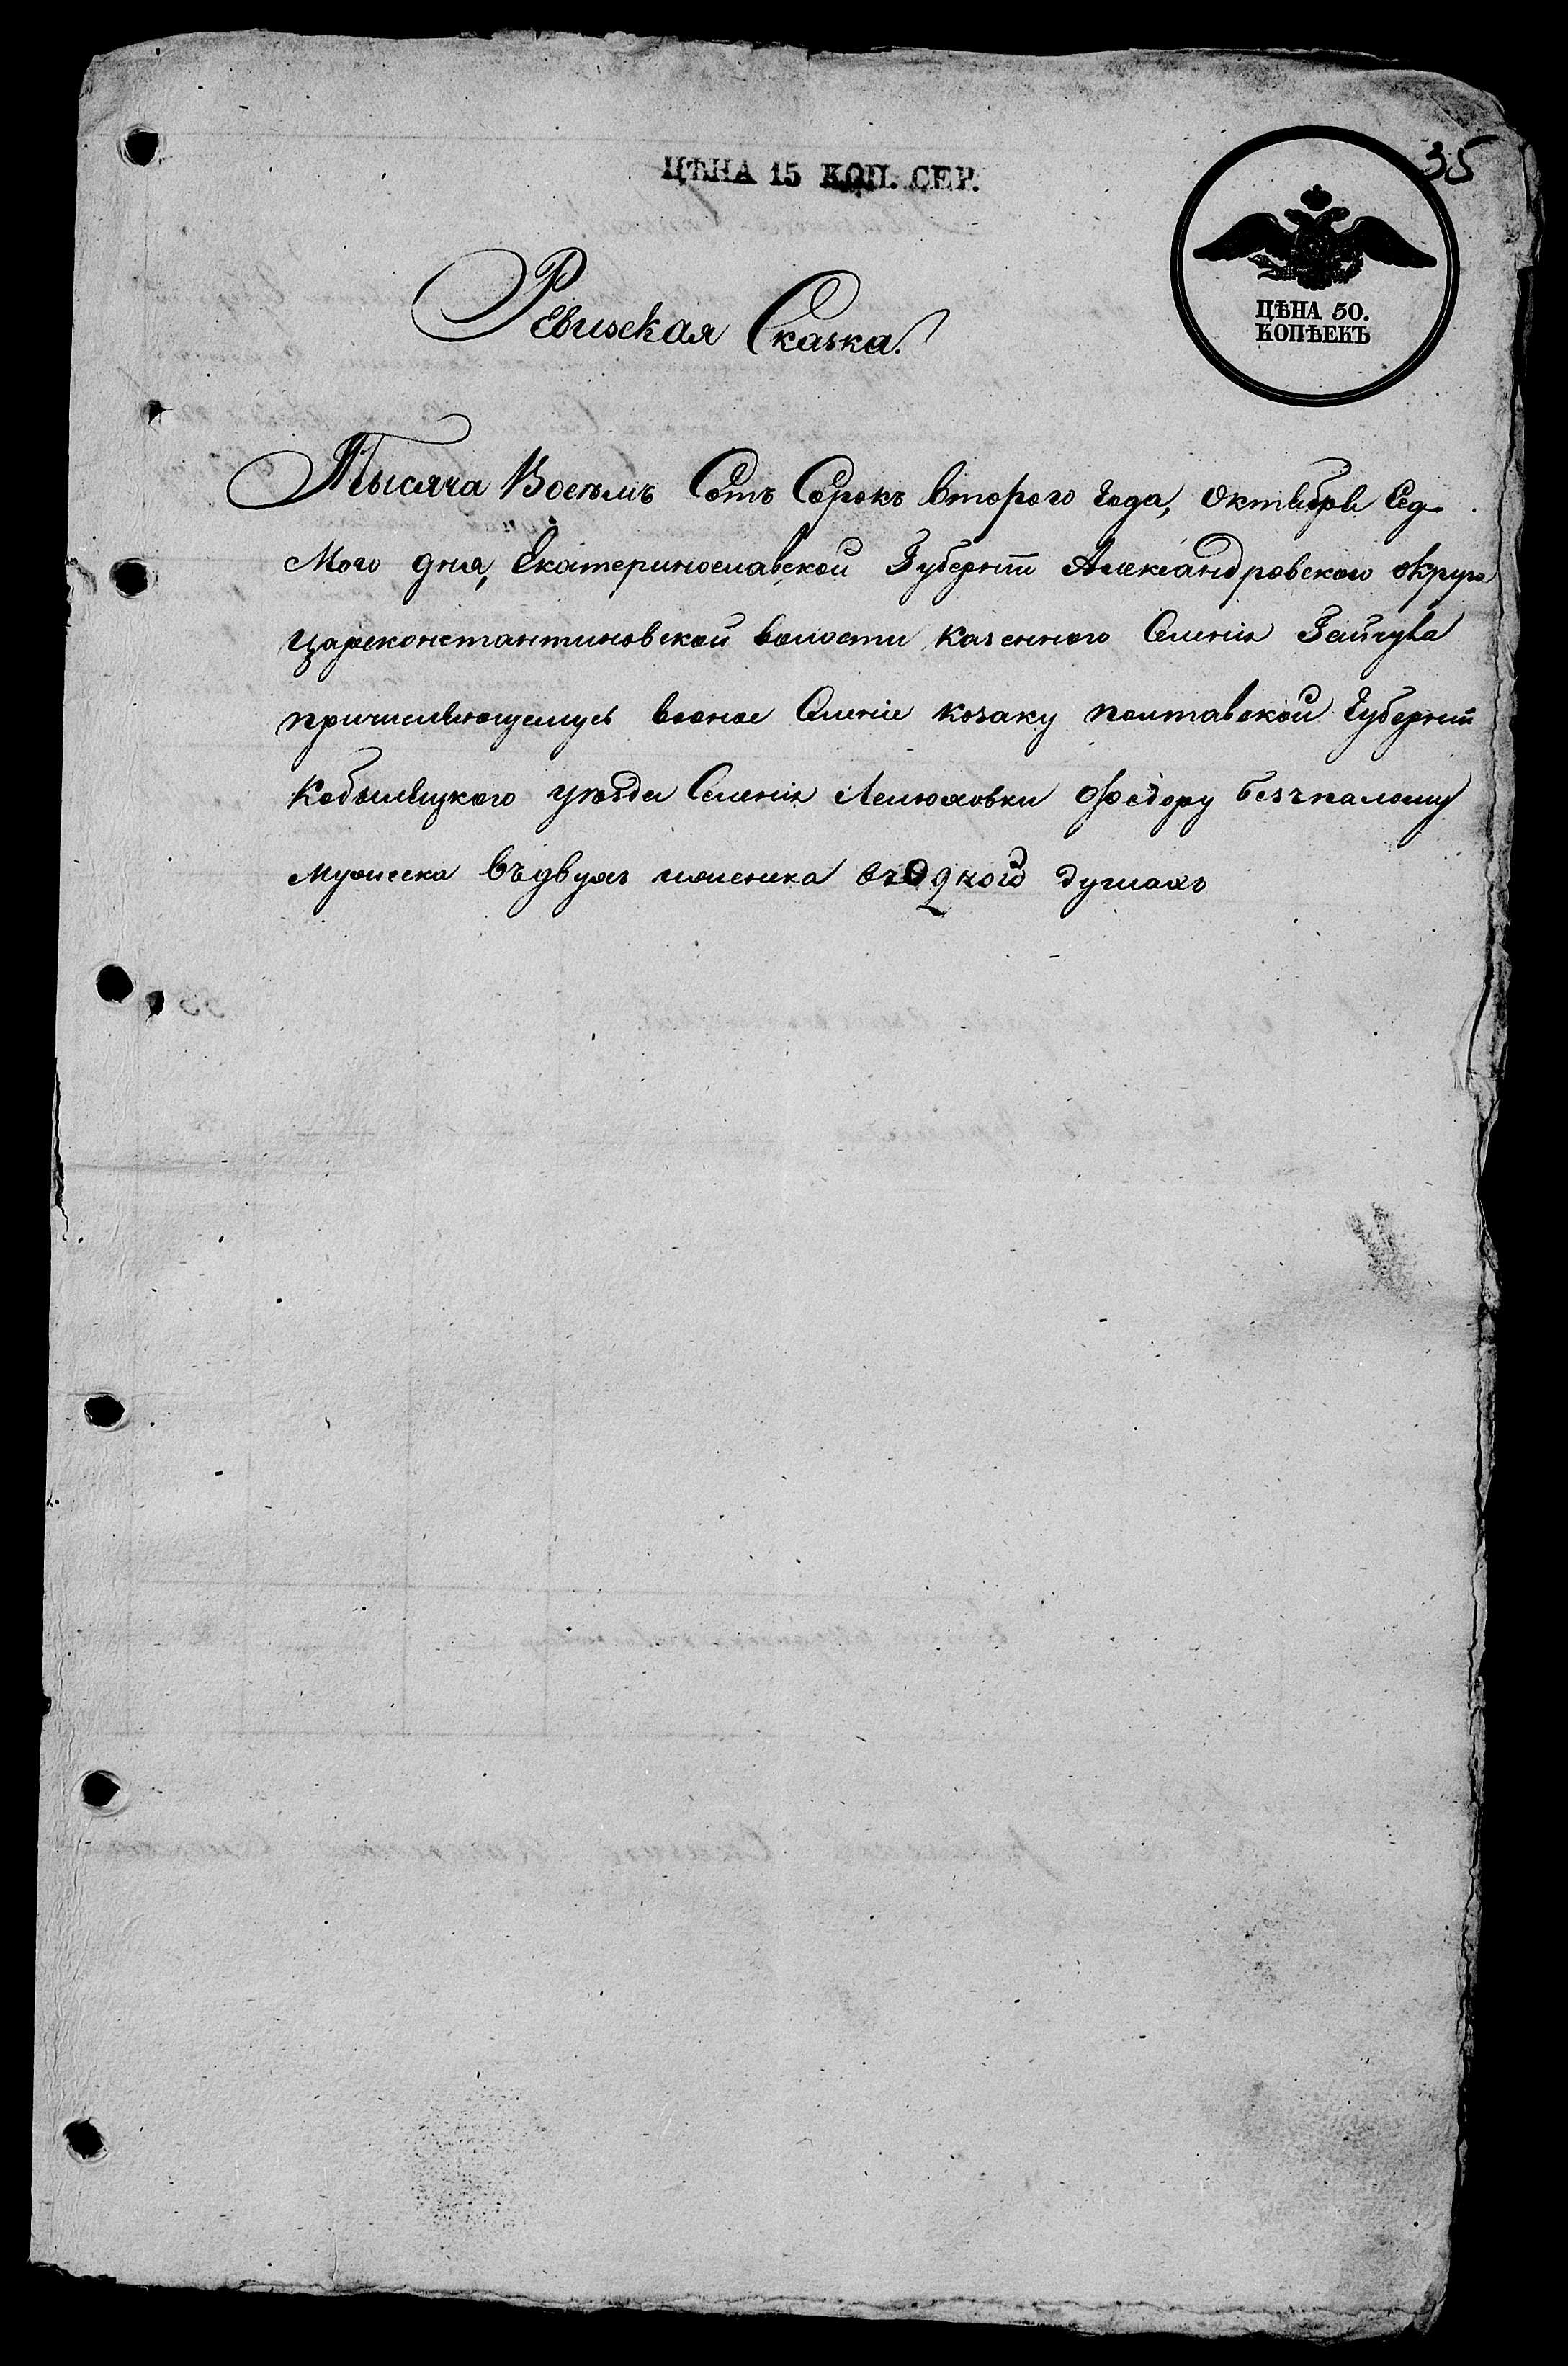 35
ЦѢНА 15 КОП. СЕР.
ЦѢНА 50.
КОПѢЕКЪ
Ревизская Сказка.
Тысяча Восемъ Сотъ Сорокъ второго года, октября Сед-
мого дня, Екатеринославской Губернiи Александровского округа
цареконстантиновской волости казенного Селенiя Гайчула
причисляющемуся вооное Селенiе козаку полтавской Губернiи
Кобыляцкого уѣзда Селенiя Лелюховки Фёдору безъпалому
мужеска въдвухъ женска въодной душахъ